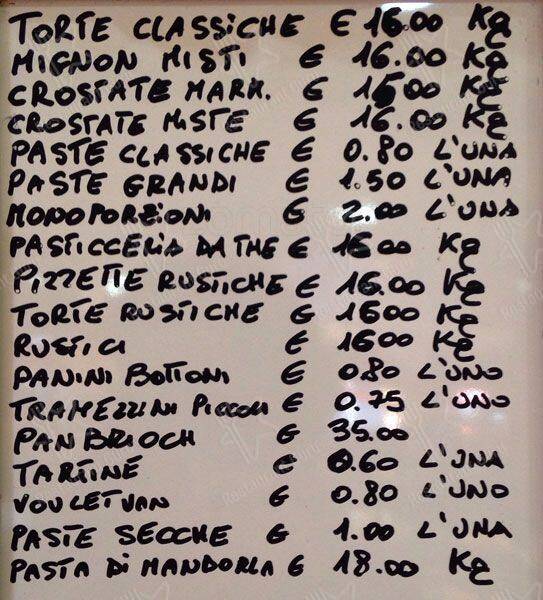 TORTE CLASSICHE € 16.00 Kg
MIGNON MISTI € 16.00 Kg
CROSTATE MARM. € 15.00 Kg
CROSTATE MISTE € 16.00 Kg
PASTE CLASSICHE € 0.80 L'UNA
PASTE GRANDI € 1.50 L'UNA
MONOPORZIONI € 2.00 L'UNA
PASTICCERIA DA THE € 16.00 Kg
PIZZETTE RUSTICHE € 16.00 Kg
TORTE RUSTICHE € 16.00 Kg
RUSTICI € 16.00 Kg
PANINI BOTTONI € 0.80 L'UNO
TRAMEZZINI PICCOLI € 0.75 L'UNO
PAN BRIOCH € 35.00
TARTINE € 0.60 L'UNA
VOULETVAN € 0.80 L'UNO
PASTE SECCHE € 1.00 L'UNA
PASTA DI MANDORLA € 18.00 Kg